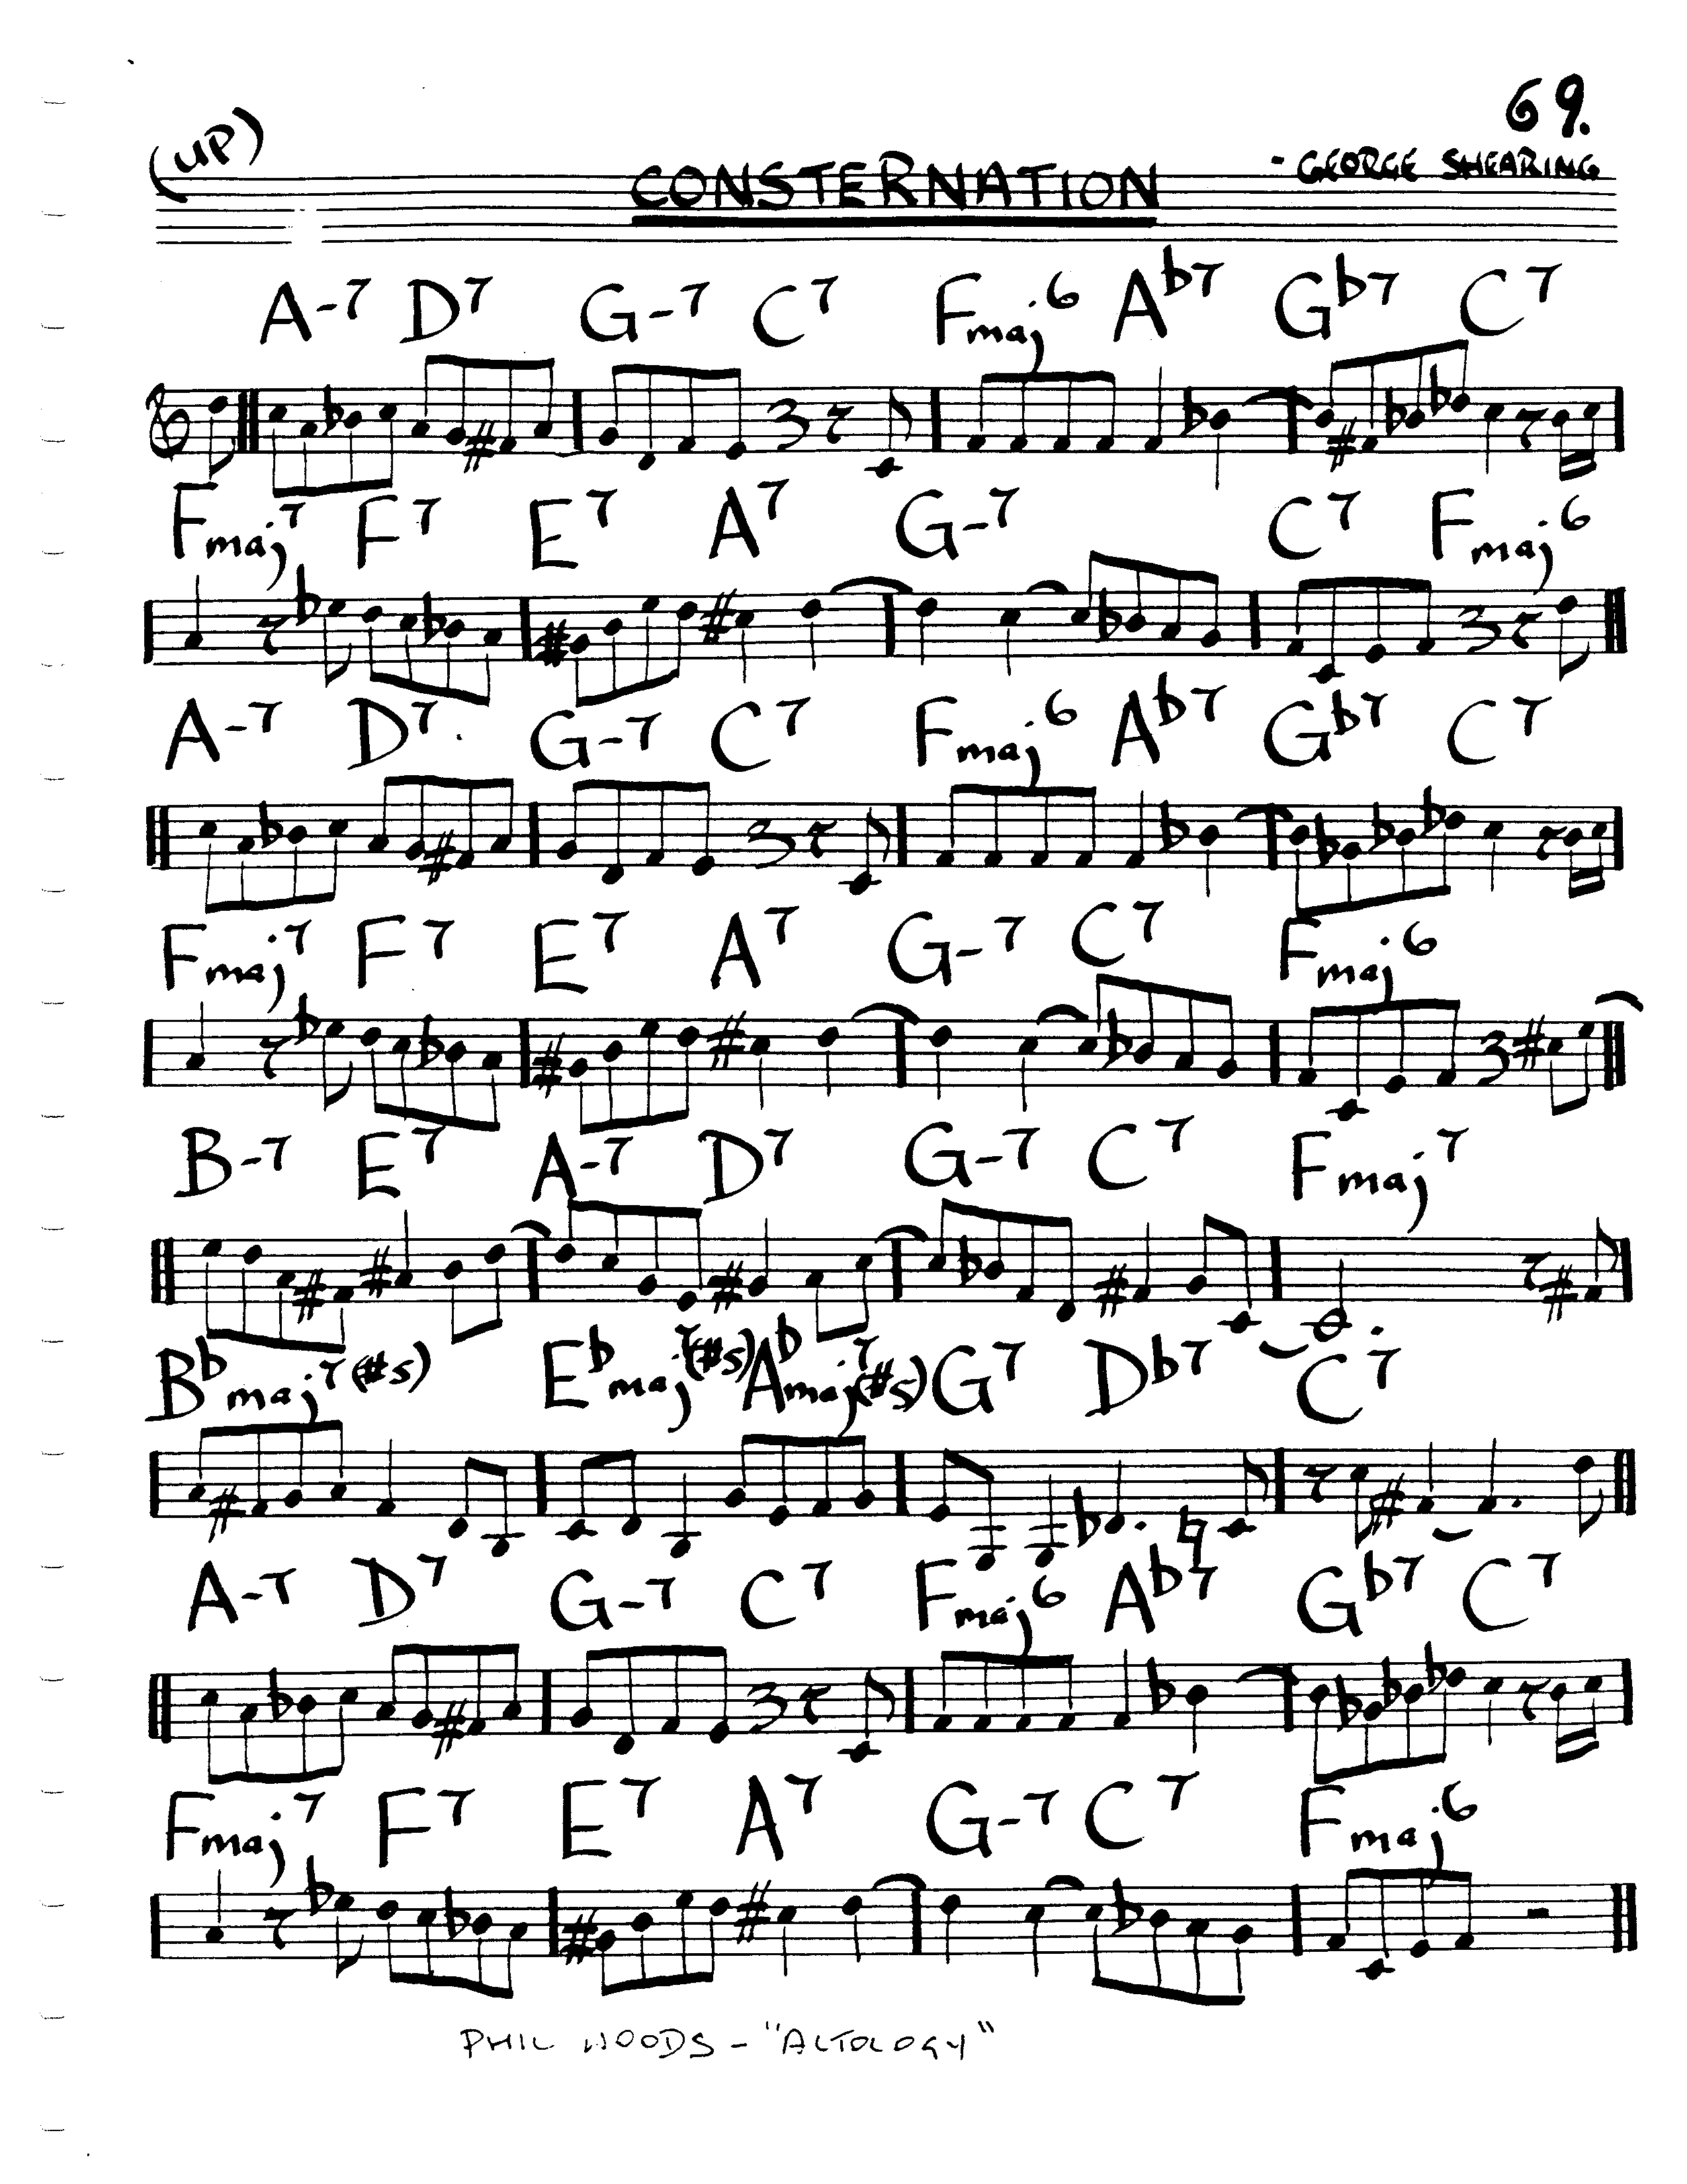 69.
(UP)
CONSTERNATION
- GEORGE SHEARING
A-7 D7 G-7 C7 Fmaj6 Ab7 Gb7 C7
Fmaj7 F7 E7 A7 G-7 C7 Fmaj6
A-7 D7 G-7 C7 Fmaj6 Ab7 Gb7 C7
Fmaj7 F7 E7 A7 G-7 C7 Fmaj6
B-7 E7 A-7 D7 G-7 C7 Fmaj7
Bbmaj7(#5) Ebmaj7(#5) Abmaj7(#5) G7 Db7 C7
A-7 D7 G-7 C7 Fmaj6 Ab7 Gb7 C7
Fmaj7 F7 E7 A7 G-7 C7 Fmaj6
PHIL WOODS - "ALTOLOGY"